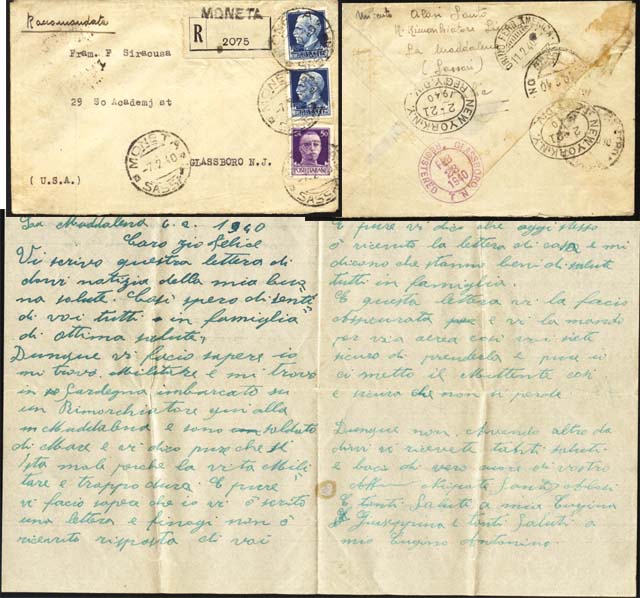 Raccomandata
MONETA
R
2075
Fram. F Siracusa
29 So Academj st
GLASSBORO N.J.
(U.S.A)
MONETA
-7.2.40
SASS
POSTE ITALIANE
50
Alari Santo
La Maddalena
(Sassari)
11.2.40
NEW YORK, N.Y.
2-21
1940
REG'Y DIV.
GLASSBORO
N.J.
FEB
1940
REGISTERED
La Maddalena 6. 2. 1940
Caro zio Felice
Vi scrivo questra lettera di
darvi natizia della mia buo
na salute. Così spero di sente
di voi tutti in famiglia
di ottima salute,
Dunque vi facio sapere io
mi trovo Militare e mi trovo
in Sardegna imbarcato su
un Rimorchiatore qui alla
Maddalena e sono soldato
di Mare e vi dico pure che si
sta male perche la vita Mili
tare e trappo dura. E pure
vi facio sapere che io vi ò scrito
una lettera e finogi non ò
ricevuto risposta di voi
E pure vi dico che oggi stesso
ò ricevuto la lettera di casa e mi
dicano che stanno beni di salute
tutti in famiglia.
E questa lettera vi la facio
e vi la mando
per via aerea così voi siete
sicuro di prenderla e pure io
ci metto il Mittente così
e sicura che non si perde
Dunque non Avendo altro da
dirvi vi ricevete saluti
e baca di vero cuore di vostro
Nipote Santo
E tanti Saluti a mia Cugina
Giuseppina e tanti Saluti a
mio Cugino Antonino.